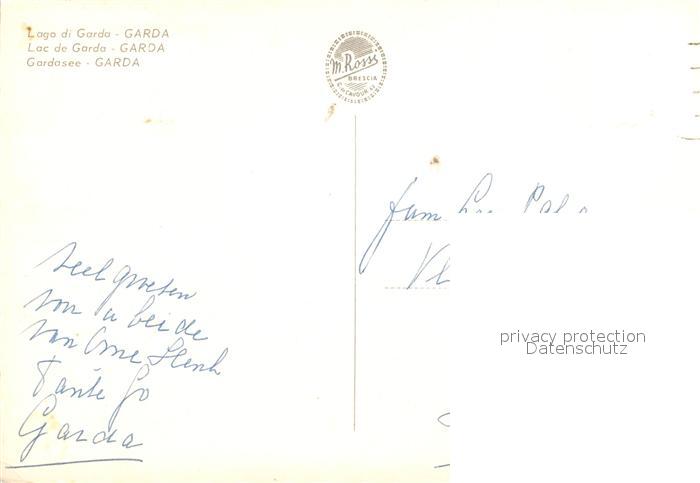 Lago di Garda - GARDA
Lac de Garda - GARDA
Gardasee - GARDA
M. Rossi
BRESCIA
CAVOUR
fam
Veel groeten
von u beide
van Ome Henk
Tante Jo
Garda
privacy protection
Datenschutz